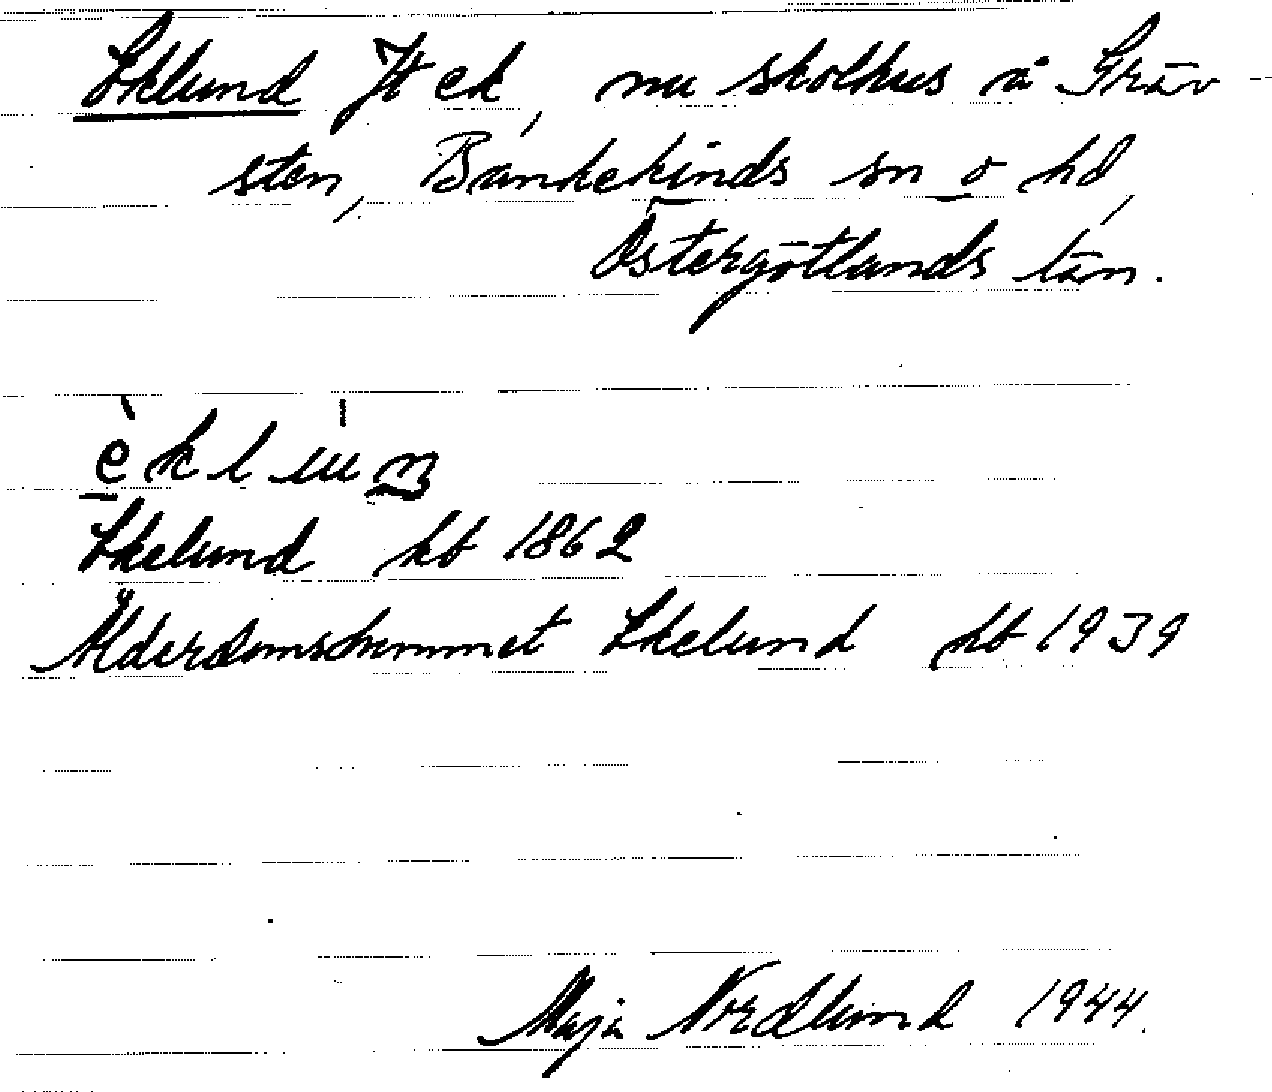 Eklund Jt ek, nu skolhus å Gräv-
sten, Bankekinds sn o hd,
Östergötlands län.
Ekelund kb 1862
Ålderdomshemmet Ekelund kb 1939
Maja Nordlund 1944.